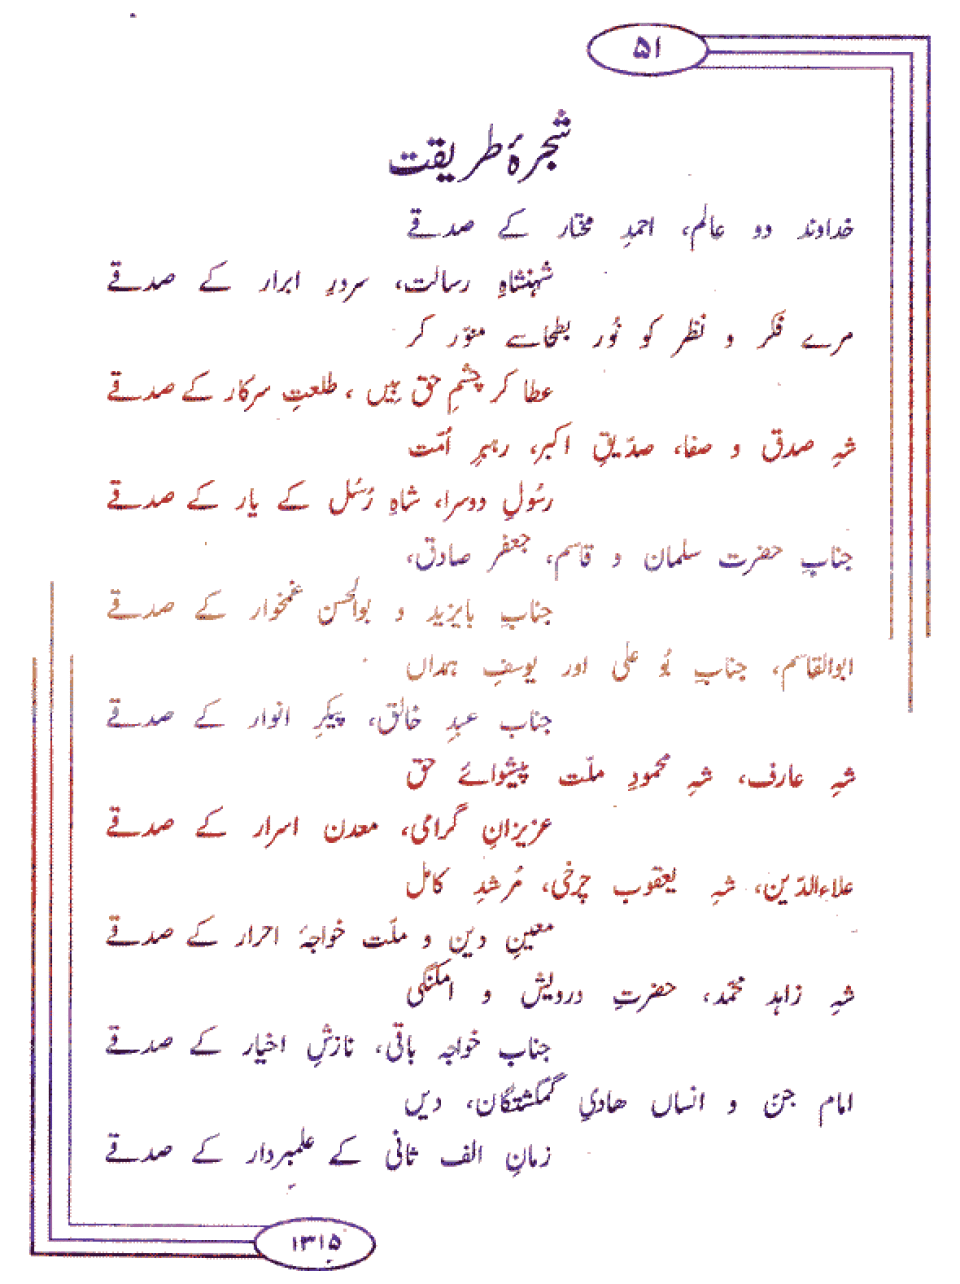 ۵۱
شجرۂ طریقت
خداوند دو عالم، احمدِ مختار کے صدقے
شہنشاہِ رسالت، سردرِ ابرار کے صدقے
مرے فکر و نظر کو نُور بطحا سے منوّر کر
عطا کر چشمِ حق بیں ، طلعتِ سرکار کے صدقے
شہِ صدق و صفا، صدّیقِ اکبر، رہبرِ اُمّت
رسُولِ دوسرا، شاہِ رُسُل کے یار کے صدقے
جنابِ حضرت سلمان و قاسم، جعفر صادق،
جنابِ بایزید و بوالحسن غمخوار کے صدقے
ابوالقاسم، جنابِ بُو علی اور یوسفِ ہمداں
جناب عبدِ خالق، پیکرِ انوار کے صدقے
شہِ عارف، شہِ محمودِ ملّت پیشوائے حق
عزیزانِ گرامی، معدن اسرار کے صدقے
علاءالدّین، شہِ یعقوب چرخی، مُرشدِ کامل
معینِ دین و ملّت خواجۂ احرار کے صدقے
شہِ زاہد محمّد، حضرتِ درویش و امکنگی
جناب خواجہ باقی، نازشِ اخیار کے صدقے
امام جنّ و انساں ھادیِ گمگشتگان، دیں
زمانِ الف ثانی کے علمبردار کے صدقے
۱۳۱۵